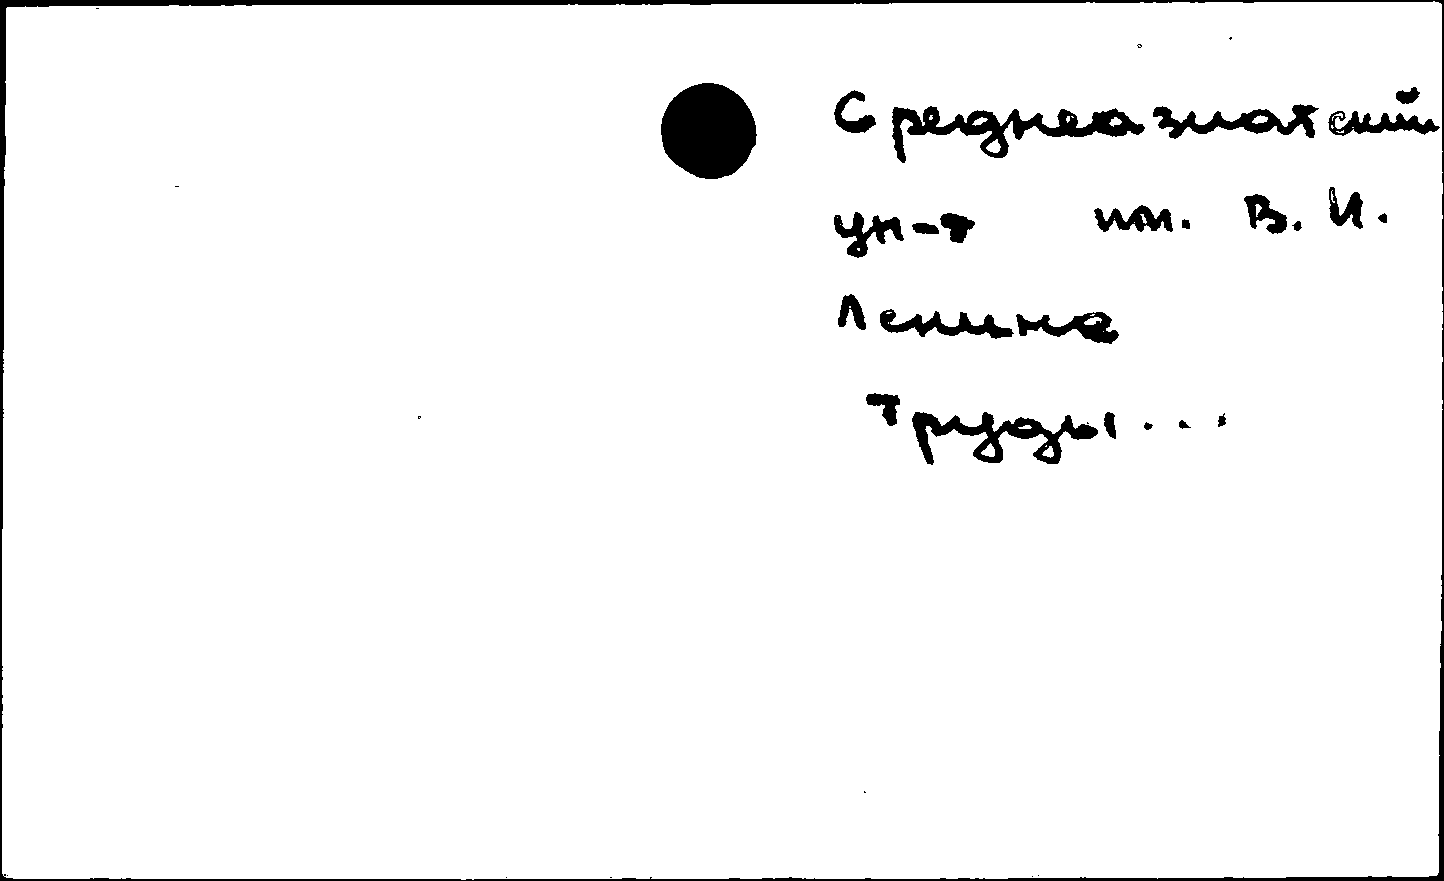 Среднеазиатский
ун-т им. В. И.
Ленина
Труды...